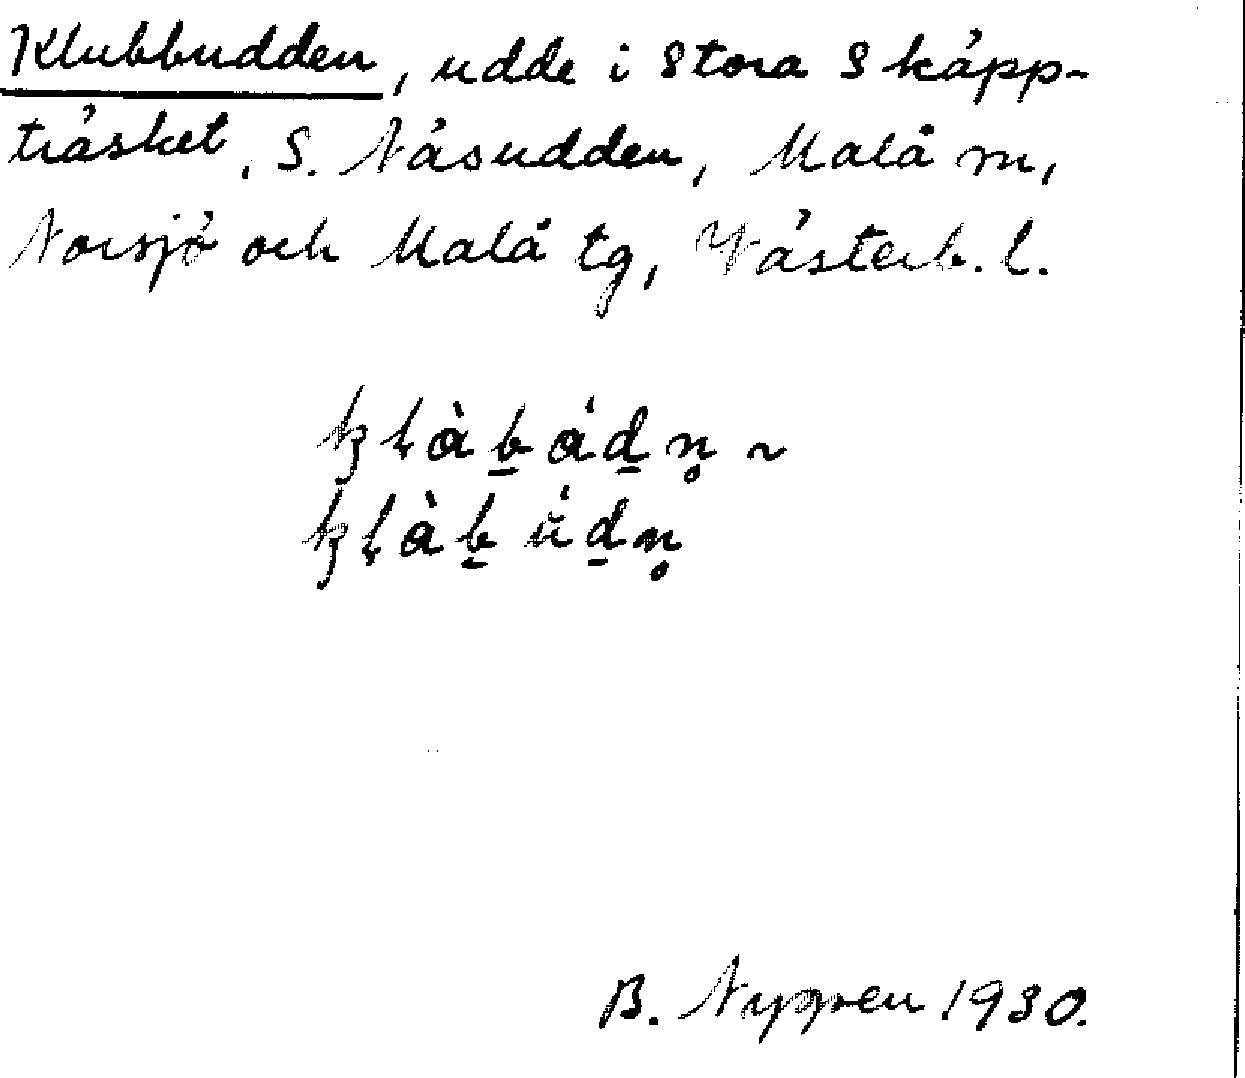 Klubbudden, udde i Stora Skäpp-
träsket, S. Näsudden, Malå sn,
Norsjö och Malå tg, Västerb. l.
B. Nygren 1930.